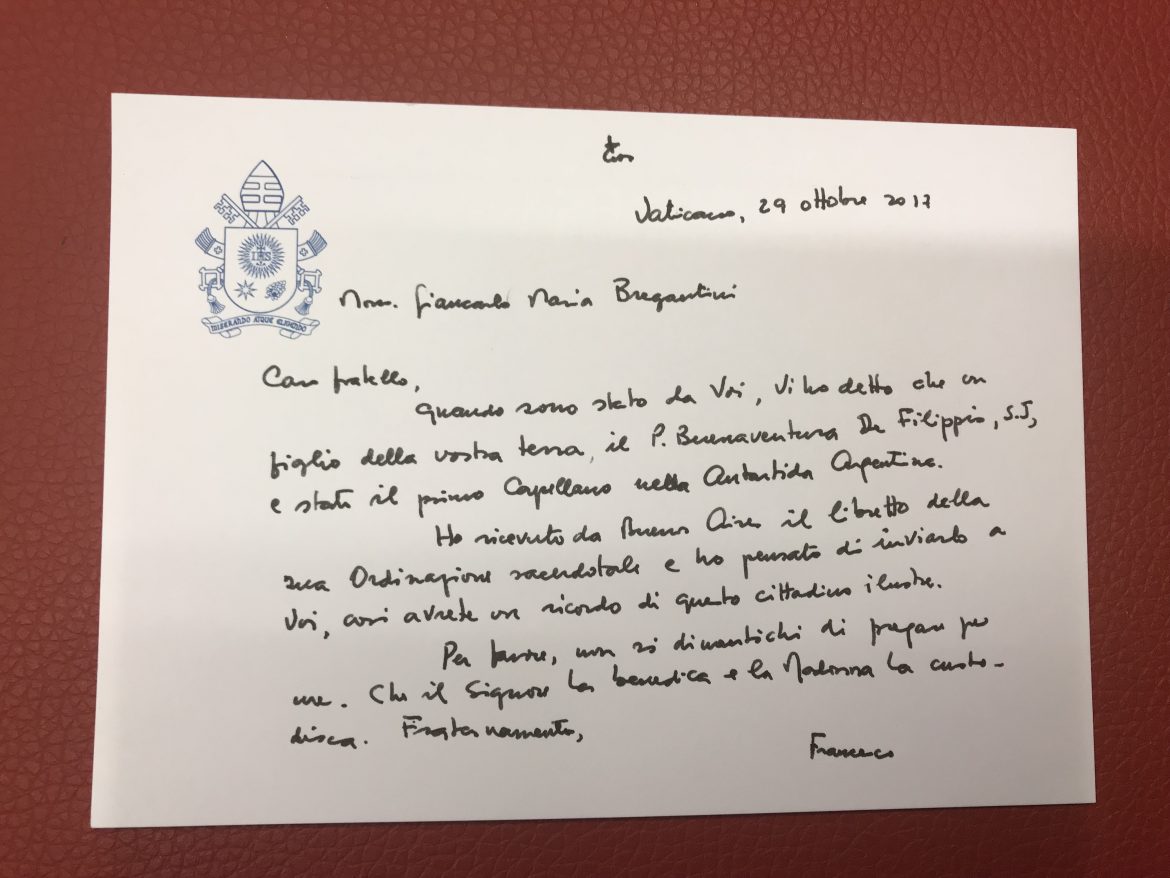 Vaticano, 29 ottobre 2017
IHS
MISERANDO ATQUE ELIGENDO
Mons. Giancarlo Maria Bregantini
Caro fratello,
quando sono stato da Voi, Vi ho detto che un
figlio della vostra terra, il P. Buenaventura De Filippis, S.J,
e stato il primo Capellano nella Antartida Argentina.
Ho ricevuto da Buenos Aires il libretto della
sua Ordinazione sacerdotale e ho pensato di inviarlo a
Voi, così avrete un ricordo di questo cittadino ilustre.
Per favore, non si dimentichi di pregare per
me. Che il Signore La benedica e la Madonna La custo-
disca. Fraternamente,
Francesco